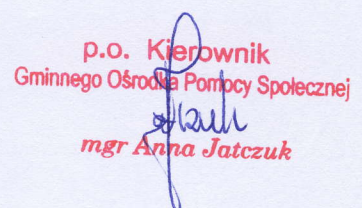 p.o. Kierownik
Gminnego Ośrodka Pomocy Społecznej
mgr Anna Jatczuk